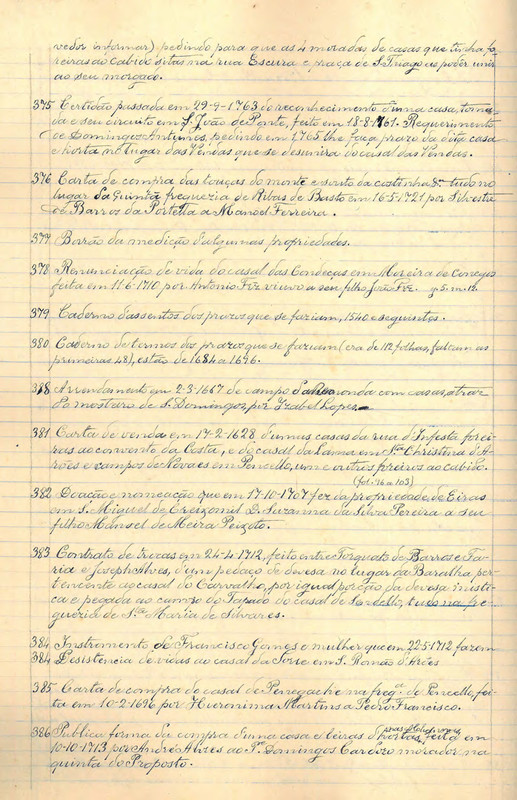 vedor informar) pedindo para que as 4 moradas de casas que tinha fo
reiras ao Cabido sitas na rua Escura e praça de S. Thiago as poder unir
ao seu morgado.
375 Certidão passada em 29-9-1763 do reconhecimento d'uma casa, torre
da e seu circuito em S. João de Ponte, feito em 18-8-1761. Requerimento
de Domingos Antunes, pedindo em 1765 lhe faça prazo da dita casa
e horta no lugar das Vendas que se desunira do casal das Vendas.
376 Carta de compra das touças do monte e souto da costinha &ª tudo no
lugar da Quintã freguezia de Ribas de Basto em 16-5-1721 por Silvestre
de Barros da Portella a Manoel Ferreira.
377 Borrão da medição d'algumas propriedades.
378 Renunciação de vida do casal das Condeças em Moreira de Conegos
feita em 11-6-1710 por Antonio Frz viuvo a seu filho João Frz. g. 5. m. 12.
379 Caderno d'assentos dos prazos que se faziam, 1540 e seguintes.
380 Caderno de termos dos prazos que se faziam (era de 112 folhas, faltam as
primeiras 48), estão de 1684 a 1696.
388 Arrendamento em 2-3-1667 do campo da com casas, atraz
do mosteiro de S. Domingos, por Izabel Lopes.
381 Carta de venda em 17-2-1628 d'umas casas da rua d'Infesta forei
ras ao convento da Costa, e do casal da Lama em Stª Christina d'A-
rões e campos de Novaes em Pencello, um e outros foreiros ao cabido.
(fol. 96 a 103)
382 Doação e nomeação que em 17-10-1707 fez da propriedade de Eiras
em S. Miguel de Creixomil D. Suzanna da Silva Pereira a seu
filho Manoel de Meira Peixoto.
383 Contrato de trocas em 24-4-1712, feito entre Torquato de Barros e Fa
ria e Joseph Alves, d'um pedaço de devesa no lugar da Baralha, per
tencente ao casal do Carvalho, por igual porção da devesa mistica
e pegada ao campo do Tapado do casal de tudo na fre
guezia de Stª Maria de Silvares.
384 Instromento de Francisco Gomes e mulher que em 22-5-1712 fazem
384 Desistencia de vidas ao casal da Torre em S. Romão d'Arões
385 Carta de compra do casal de Penegache na fregª. de Pencello, fei
ta em 10-2-1696 por Hieronima Martins a Pedro Francisco.
386 Publica forma da compra d'uma casa e leiras d'hortas, feita em
10-10-1713 por André Alvres ao Pe. Domingos Cardozo morador na
quinta do Proposto.